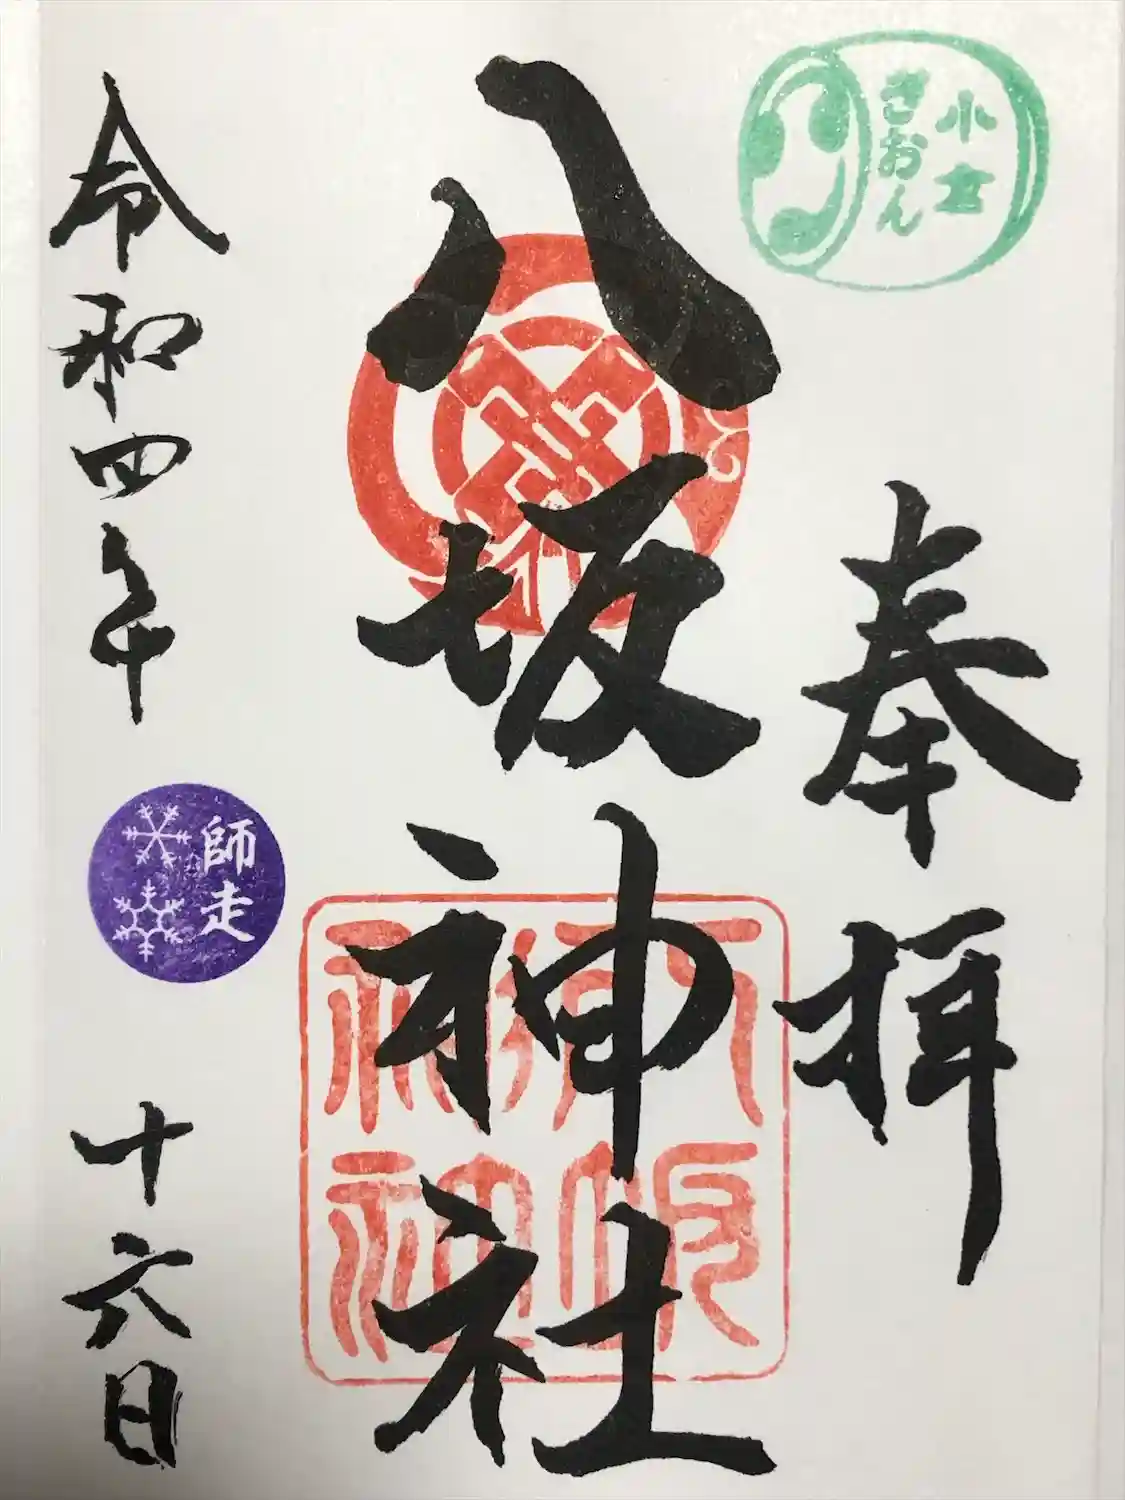 小倉
ぎおん
奉拝
八坂神社
八坂神社
令和四年
師走
十六日